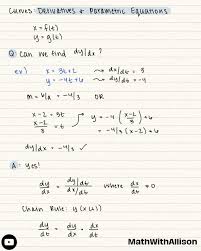 Curves: Derivatives & Parametric Equations
x = f(t)
y = g(t)
Q: Can we find dy/dx?
ex) x = 3t+2 → dx/dt = 3
y = -4t+6 → dy/dt = -4
m = b/a = -4/3 OR
x-2 = 3t
x-2/3 = t
y = -4(x-2/3)+6
= -4/3(x-2)+6
dy/dx = -4/3 ✓
A: yes!
dy/dx = dy/dt / dx/dt where dx/dt ≠ 0
Chain Rule: y(x(t))
dy/dt = dy/dx · dx/dt
MathWithAllison